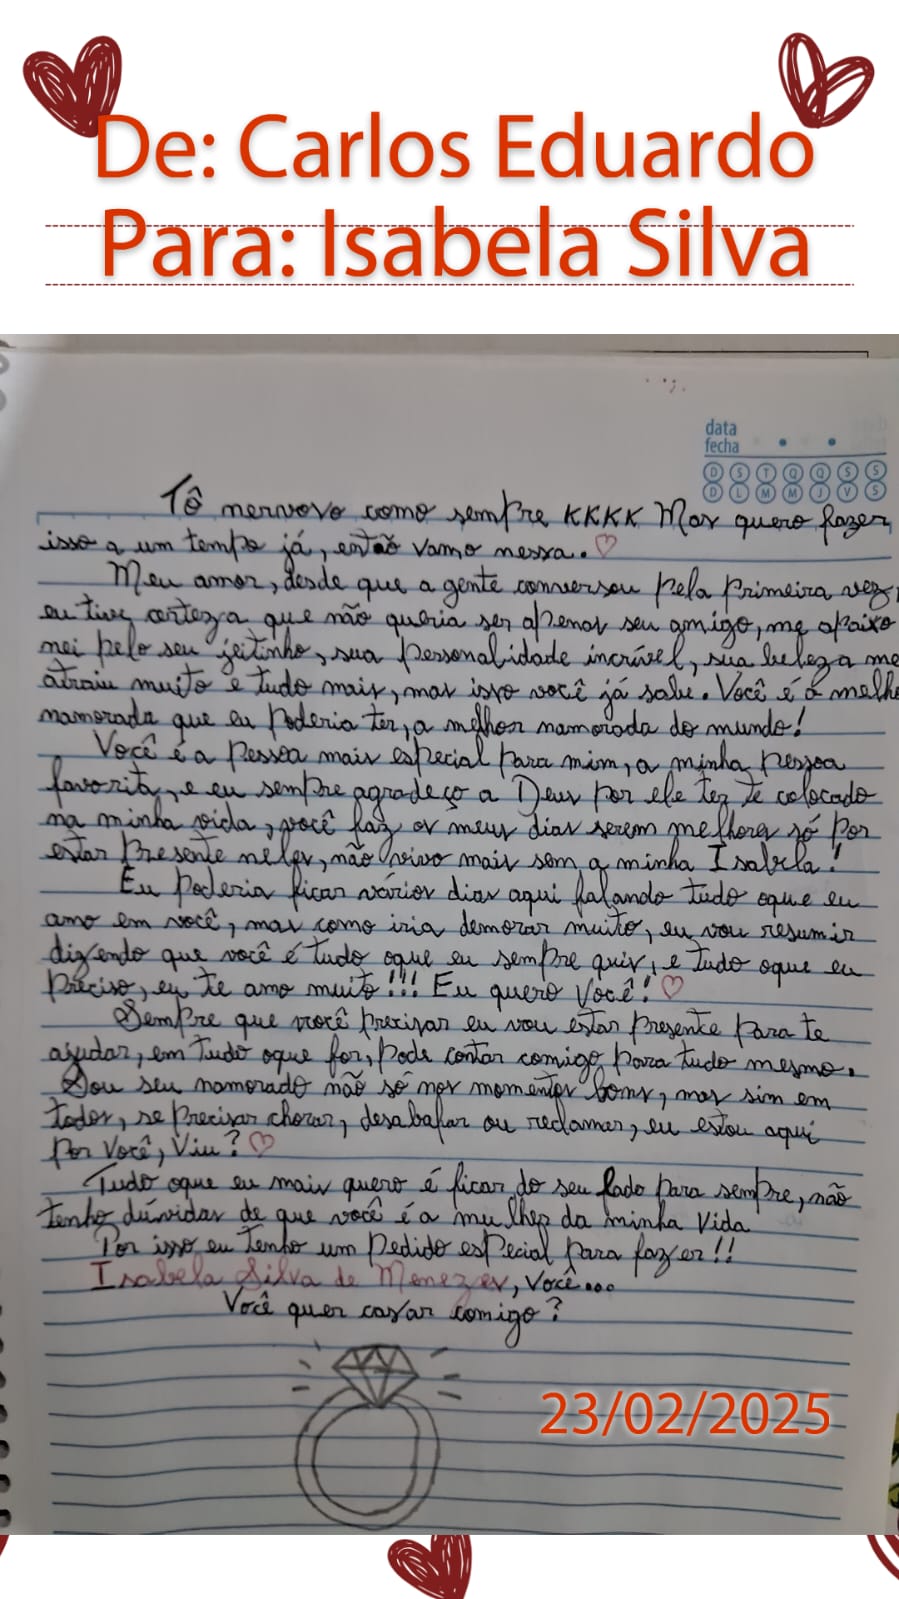 De: Carlos Eduardo
Para: Isabela Silva
data
fecha
D S T Q Q S S
D L M M J V S
Tô nervovo como sempre KKKK Mas quero fazer
isso a um tempo já, então vamo nessa.
Meu amor, desde que a gente conversou pela primeira vez,
eu tive certeza que não queria ser apenas seu amigo, me apaixo
nei pelo seu jeitinho, sua personalidade incrível, sua beleza me
atraiu muito e tudo mais, mas isso você já sabe. Você é a melho
namorada que eu poderia ter, a melhor namorada do mundo!
Você é a pessoa mais especial para mim, a minha pessoa
favorita, e eu sempre agradeço a Deus por ele ter te colocado
na minha vida, você faz os meus dias serem melhores só por
estar presente neles, não vivo mais sem a minha Isabela!
Eu poderia ficar vários dias aqui falando tudo oque eu
amo em você, mas como iria demorar muito, eu vou resumir
dizendo que você é tudo oque eu sempre quis, e tudo oque eu
preciso, eu te amo muito!!! Eu quero você!
Sempre que você precisar eu vou estar presente para te
ajudar, em tudo oque for, pode contar comigo para tudo mesmo.
Sou seu namorado não só nos momentos bons, mas sim em
todos, se precisar chorar, desabafar ou reclamar, eu estou aqui
por você, viu?
Tudo oque eu mais quero é ficar do seu lado para sempre, não
tenho dúvidas de que você é a mulher da minha vida
Por isso eu tenho um pedido especial para fazer!!
Isabela Silva de Menezes, você...
Você quer casar comigo?
23/02/2025